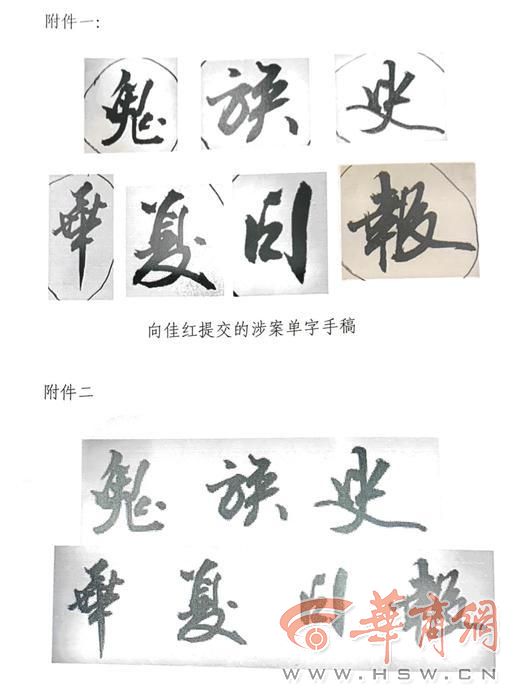 附件一:
鬼族史
華夏日報
向佳红提交的涉案单字手稿
附件二
鬼族史
華夏日報
華商網
WWW.HSW.CN